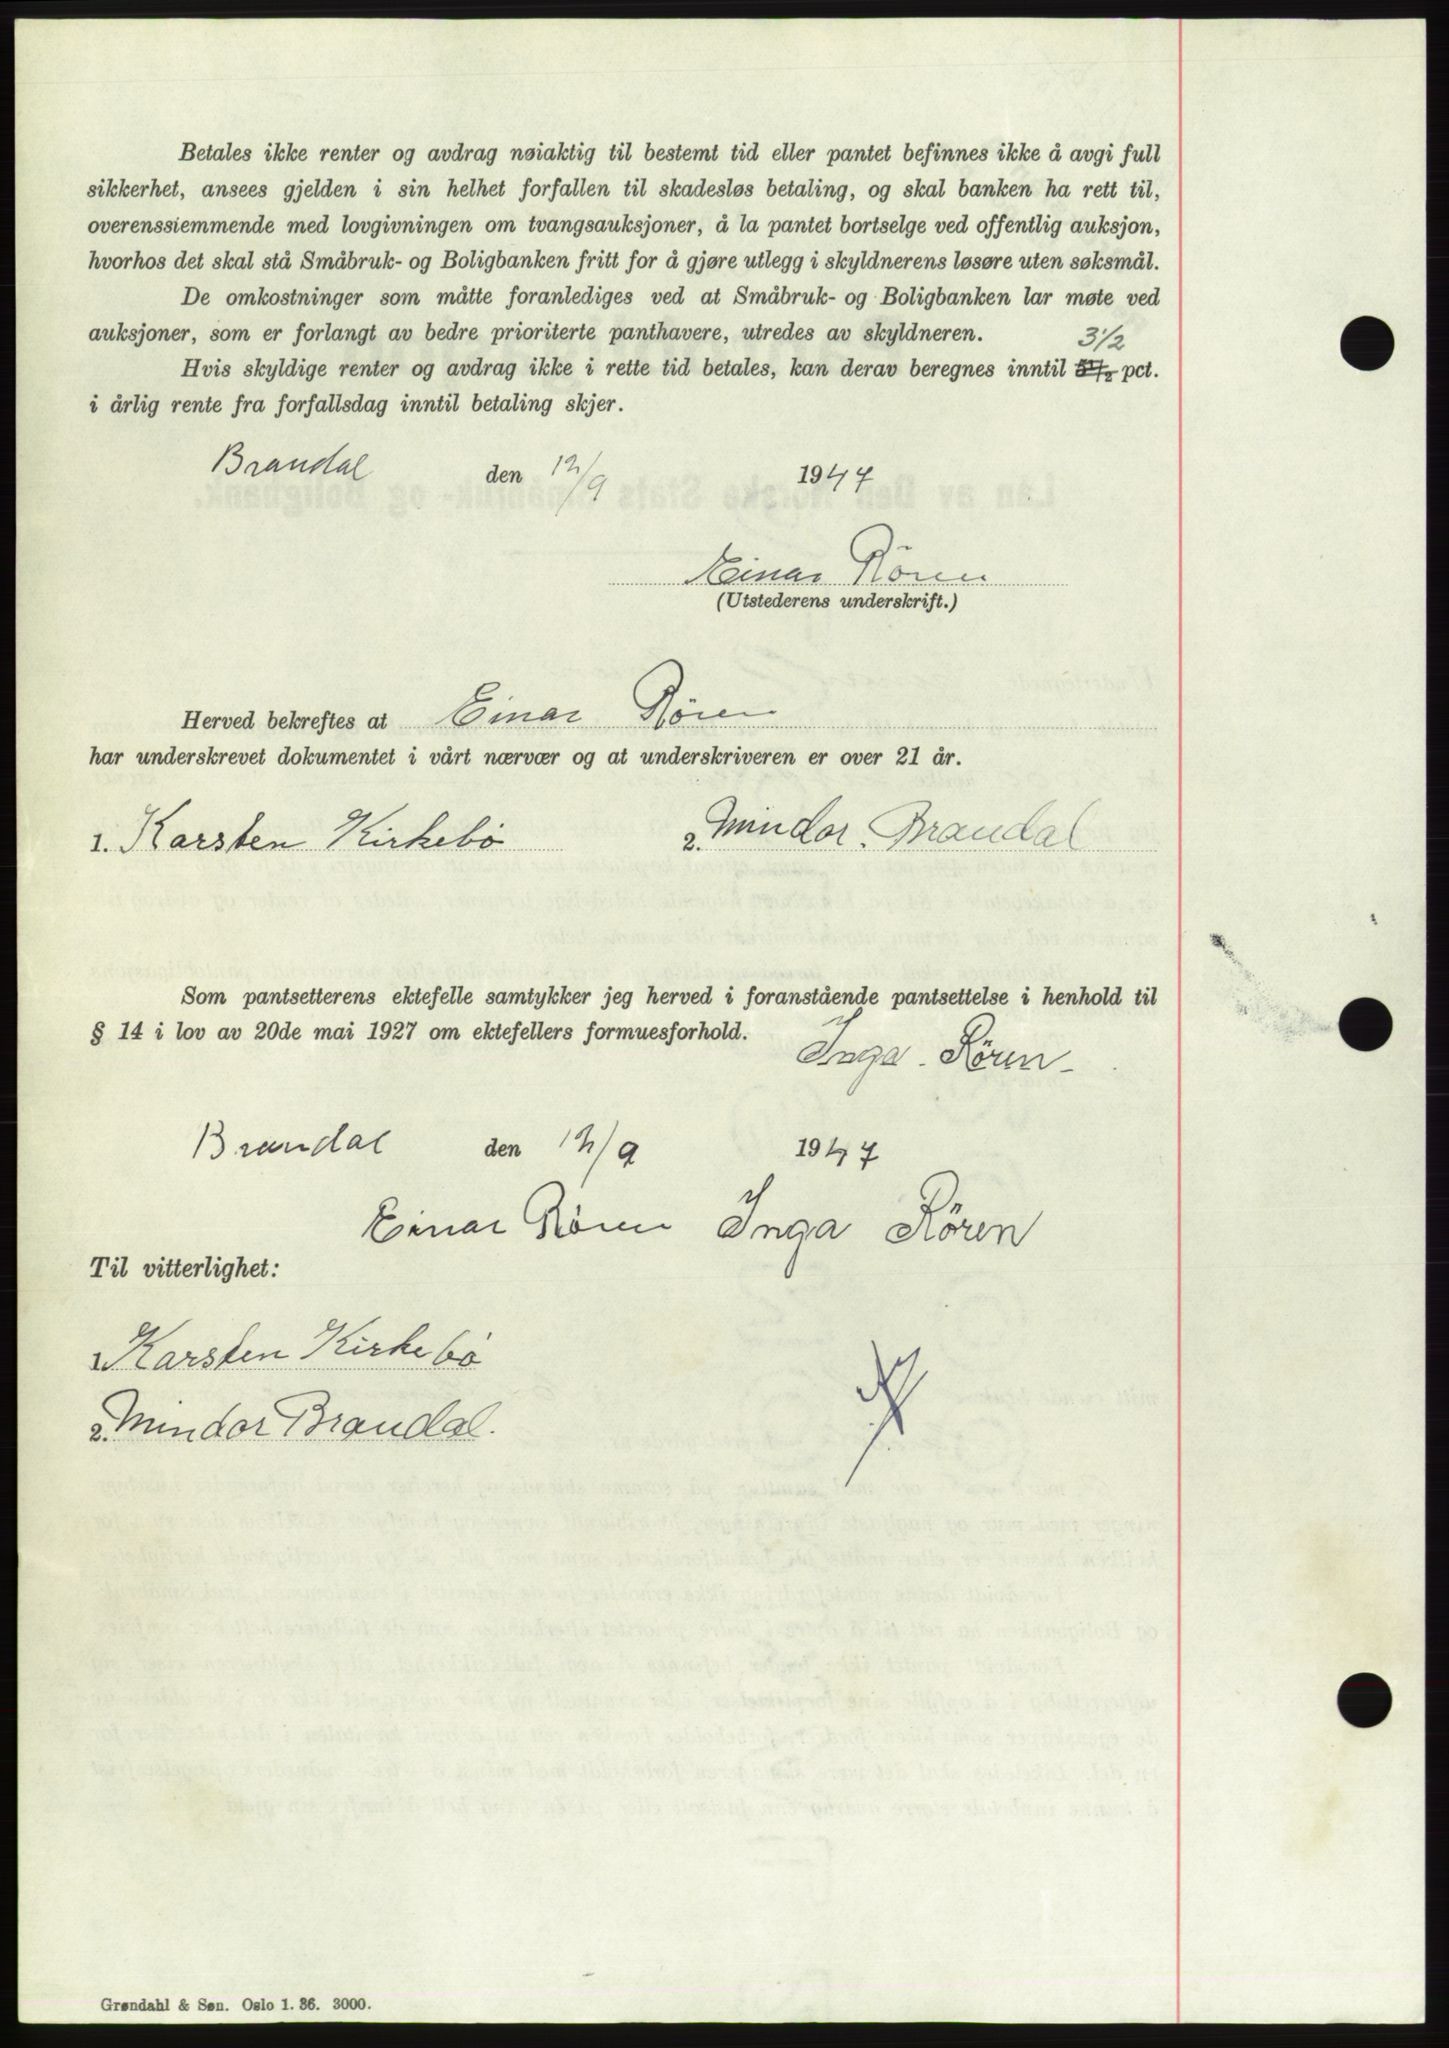 Betales ikke renter og avdrag nøiaktig til bestemt tid eller pantet befinnes ikke å avgi full
sikkerhet, ansees gjelden i sin helhet forfallen til skadesløs betaling, og skal banken ha rett til,
overenssiemmende med lovgivningen om tvangsauksjoner, å la pantet bortselge ved offentlig auksjon,
hvorhos det skal stå Småbruk- og Boligbanken fritt for å gjøre utlegg i skyldnerens løsøre uten søksmål.
De omkostninger som måtte foranlediges ved at Småbruk- og Boligbanken lar møte ved
auksjoner, som er forlangt av bedre prioriterte panthavere, utredes av skyldneren.
3 1/2
Hvis skyldige renter og avdrag ikke i rette tid betales, kan derav beregnes inntil pct.
i årlig rente fra forfallsdag inntil betaling skjer.
Brandal den 12/9 1947
Einar Rören
(Utstederens underskrift.)
Herved bekreftes at Einar Rören
har underskrevet dokumentet i vårt nærvær og at underskriveren er over 21 år.
1. Karsten Kirkebö 2. Mindor Brandal
Som pantsetterens ektefelle samtykker jeg herved i foranstående pantsettelse i henhold til
§ 14 i lov av 20de mai 1927 om ektefellers formuesforhold.
Inga Rören
Brandal den 12/9 1947
Einar Rören Inga Rören
Til vitterlighet:
1. Karsten Kirkebö
2. Mindor Brandal.
Grøndahl & Søn. Oslo 1. 36. 3000.